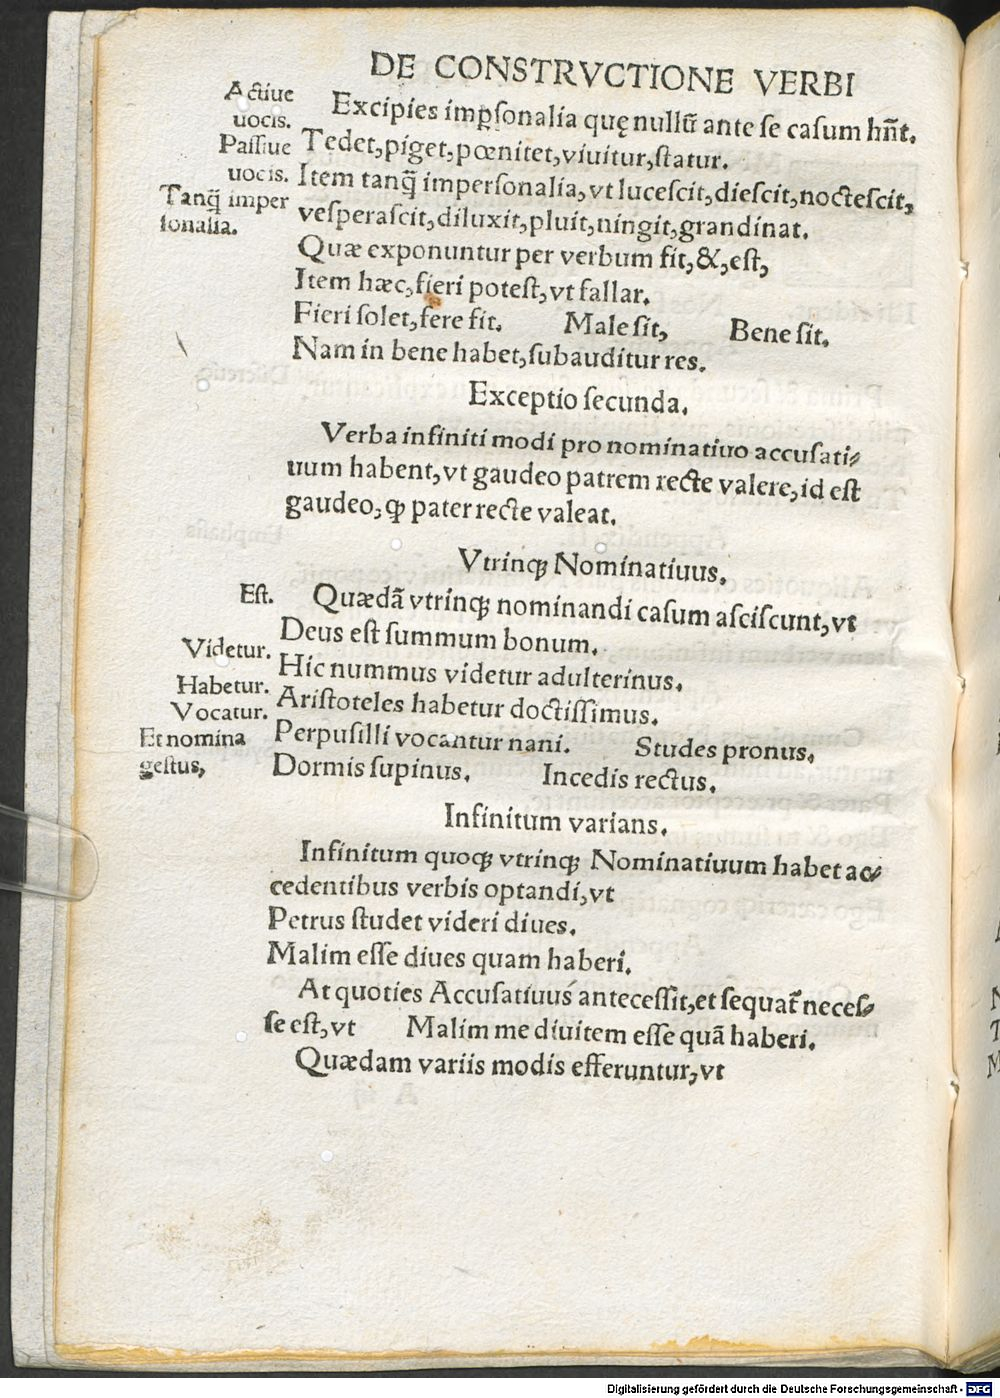 DE CONSTRVCTIONE VERBI
Actiue
uocis.
Passiue
uocis.
Tanq̃ imper
sonalia.
Excipies imp̱sonalia quę nullũ ante se casum hñt.
Tedet, piget, pœnitet, viuitur, statur.
Item tanq̃ impersonalia, vt lucescit, diescit, noctescit,
vesperascit, diluxit, pluit, ningit, grandinat.
Quæ exponuntur per verbum fit, &, est,
Item hæc, fieri potest, vt fallar.
Fieri solet, fere fit. Male sit, Bene sit.
Nam in bene habet, subauditur res.
Exceptio secunda.
Verba infiniti modi pro nominatiuo accusati⸗
uum habent, vt gaudeo patrem recte valere, id est
gaudeo, ꝙ pater recte valeat.
Vtrinqꝫ Nominatiuus.
Est.
Quædã vtrinqꝫ nominandi casum asciscunt, vt
Deus est summum bonum.
Videtur.
Hic nummus videtur adulterinus.
Habetur.
Aristoteles habetur doctissimus.
Vocatur.
Perpusilli vocantur nani. Studes pronus.
Et nomina
gestus,
Dormis supinus. Incedis rectus.
Infinitum varians.
Infinitum quoqꝫ vtrinqꝫ Nominatiuum habet ac⸗
cedentibus verbis optandi, vt
Petrus studet videri diues.
Malim esse diues quam haberi.
At quoties Accusatiuus antecessit, et sequat᷑ neces⸗
se est, vt Malim me diuitem esse quã haberi.
Quædam variis modis efferuntur, vt
Digitalisierung gefördert durch die Deutsche Forschungsgemeinschaft - DFG